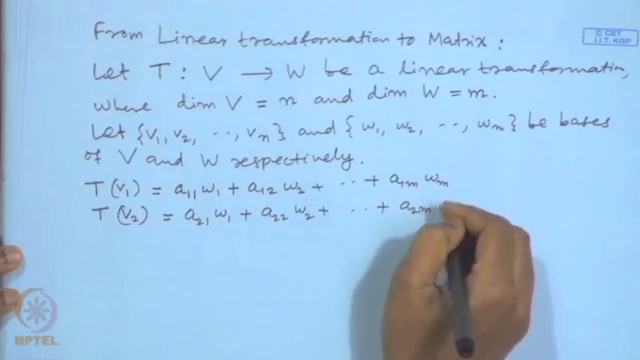 © CET
I.I.T. KGP
From Linear transformation to Matrix :
Let T : V → W be a linear transformation,
where dim V = n and dim W = m.
Let {v₁, v₂, ‥, vₙ} and {w₁, w₂, ‥, wₘ} be bases
of V and W respectively.
T(v₁) = a₁₁ w₁ + a₁₂ w₂ + ‥ + a₁ₘ wₘ
T(v₂) = a₂₁ w₁ + a₂₂ w₂ + ‥ + a₂ₘ
NPTEL